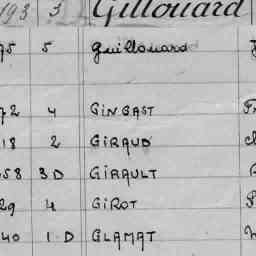 193 3 Gillouard
75 5 Guillouard
72 4 GINGAST
18 2 GIRAUD
58 3D GIRAULT
29 4 GIROT
40 1.D GLAMAT